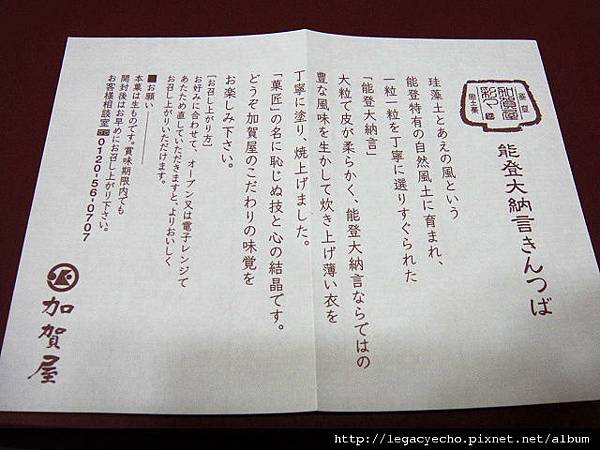 能登大納言きんつば
珪藻土とあえの風という
能登特有の自然風土に育まれ、
一粒一粒を丁寧に選りすぐられた
「能登大納言」
大粒で皮が柔らかく、能登大納言ならではの
豊な風味を生かして炊き上げ薄い衣を
丁寧に塗り、焼上げました。
「菓匠」の名に恥じぬ技と心の結晶です。
どうぞ加賀屋のこだわりの味覚を
お楽しみ下さい。
【お召し上がり方】
お好みに合わせて、オーブン又は電子レンジで
あたため直していただきますと、よりおいしく
お召し上がりいただけます。
■お願い
本菓は生ものです。賞味期限内でも
開封後はお早めにお召し上がり下さい。
お客様相談室 0120-56-0707
加賀屋
http://legacyecho.pixnet.net/album